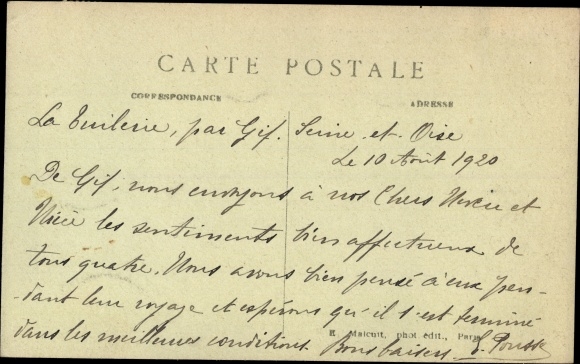 CARTE POSTALE
CORRESPONDANCE
ADRESSE
La Tuilerie, par Gif. Seine-et-Oise
Le 10 Août 1920
De Gif, nous envoyons à nos Chers Neveu et
Nièce les sentiments bien affectueux de
tous quatre. Nous avons bien pensé à eux pen-
-dant leur voyage et espérons qu'il s'est terminé
E. Malcuit, phot édit., Paris
dans les meilleures conditions. Bons baisers.